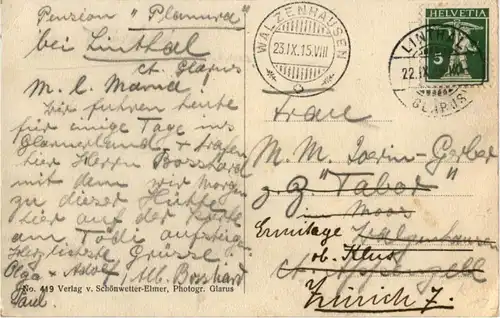 Pension "Planura"
bei Linthal
ct. Glarus
M. l. Mama!
Wir fuhren heute
für einige Tage ins
Glarnerland & trafen
hier Herrn Bosshard
mit dem wir morgen
zu dieser Hütte
hier auf der Höhe
am Tödi aufsteigen
Herzlichste Grüsse
Olga & Adolf Alb. Bosshard
Paul
No. 419 Verlag v. Schönwetter-Elmer, Photogr. Glarus
WALZENHAUSEN
23.IX.15.VIII
HELVETIA
5
LINTHAL
22.IX
GLARUS
Frau
M. M. Gerber
z. Z. "Tabor"
im Moos
Ermitage Walzenhausen
ob. Klus
ct. Appenzell
Zürich 7.